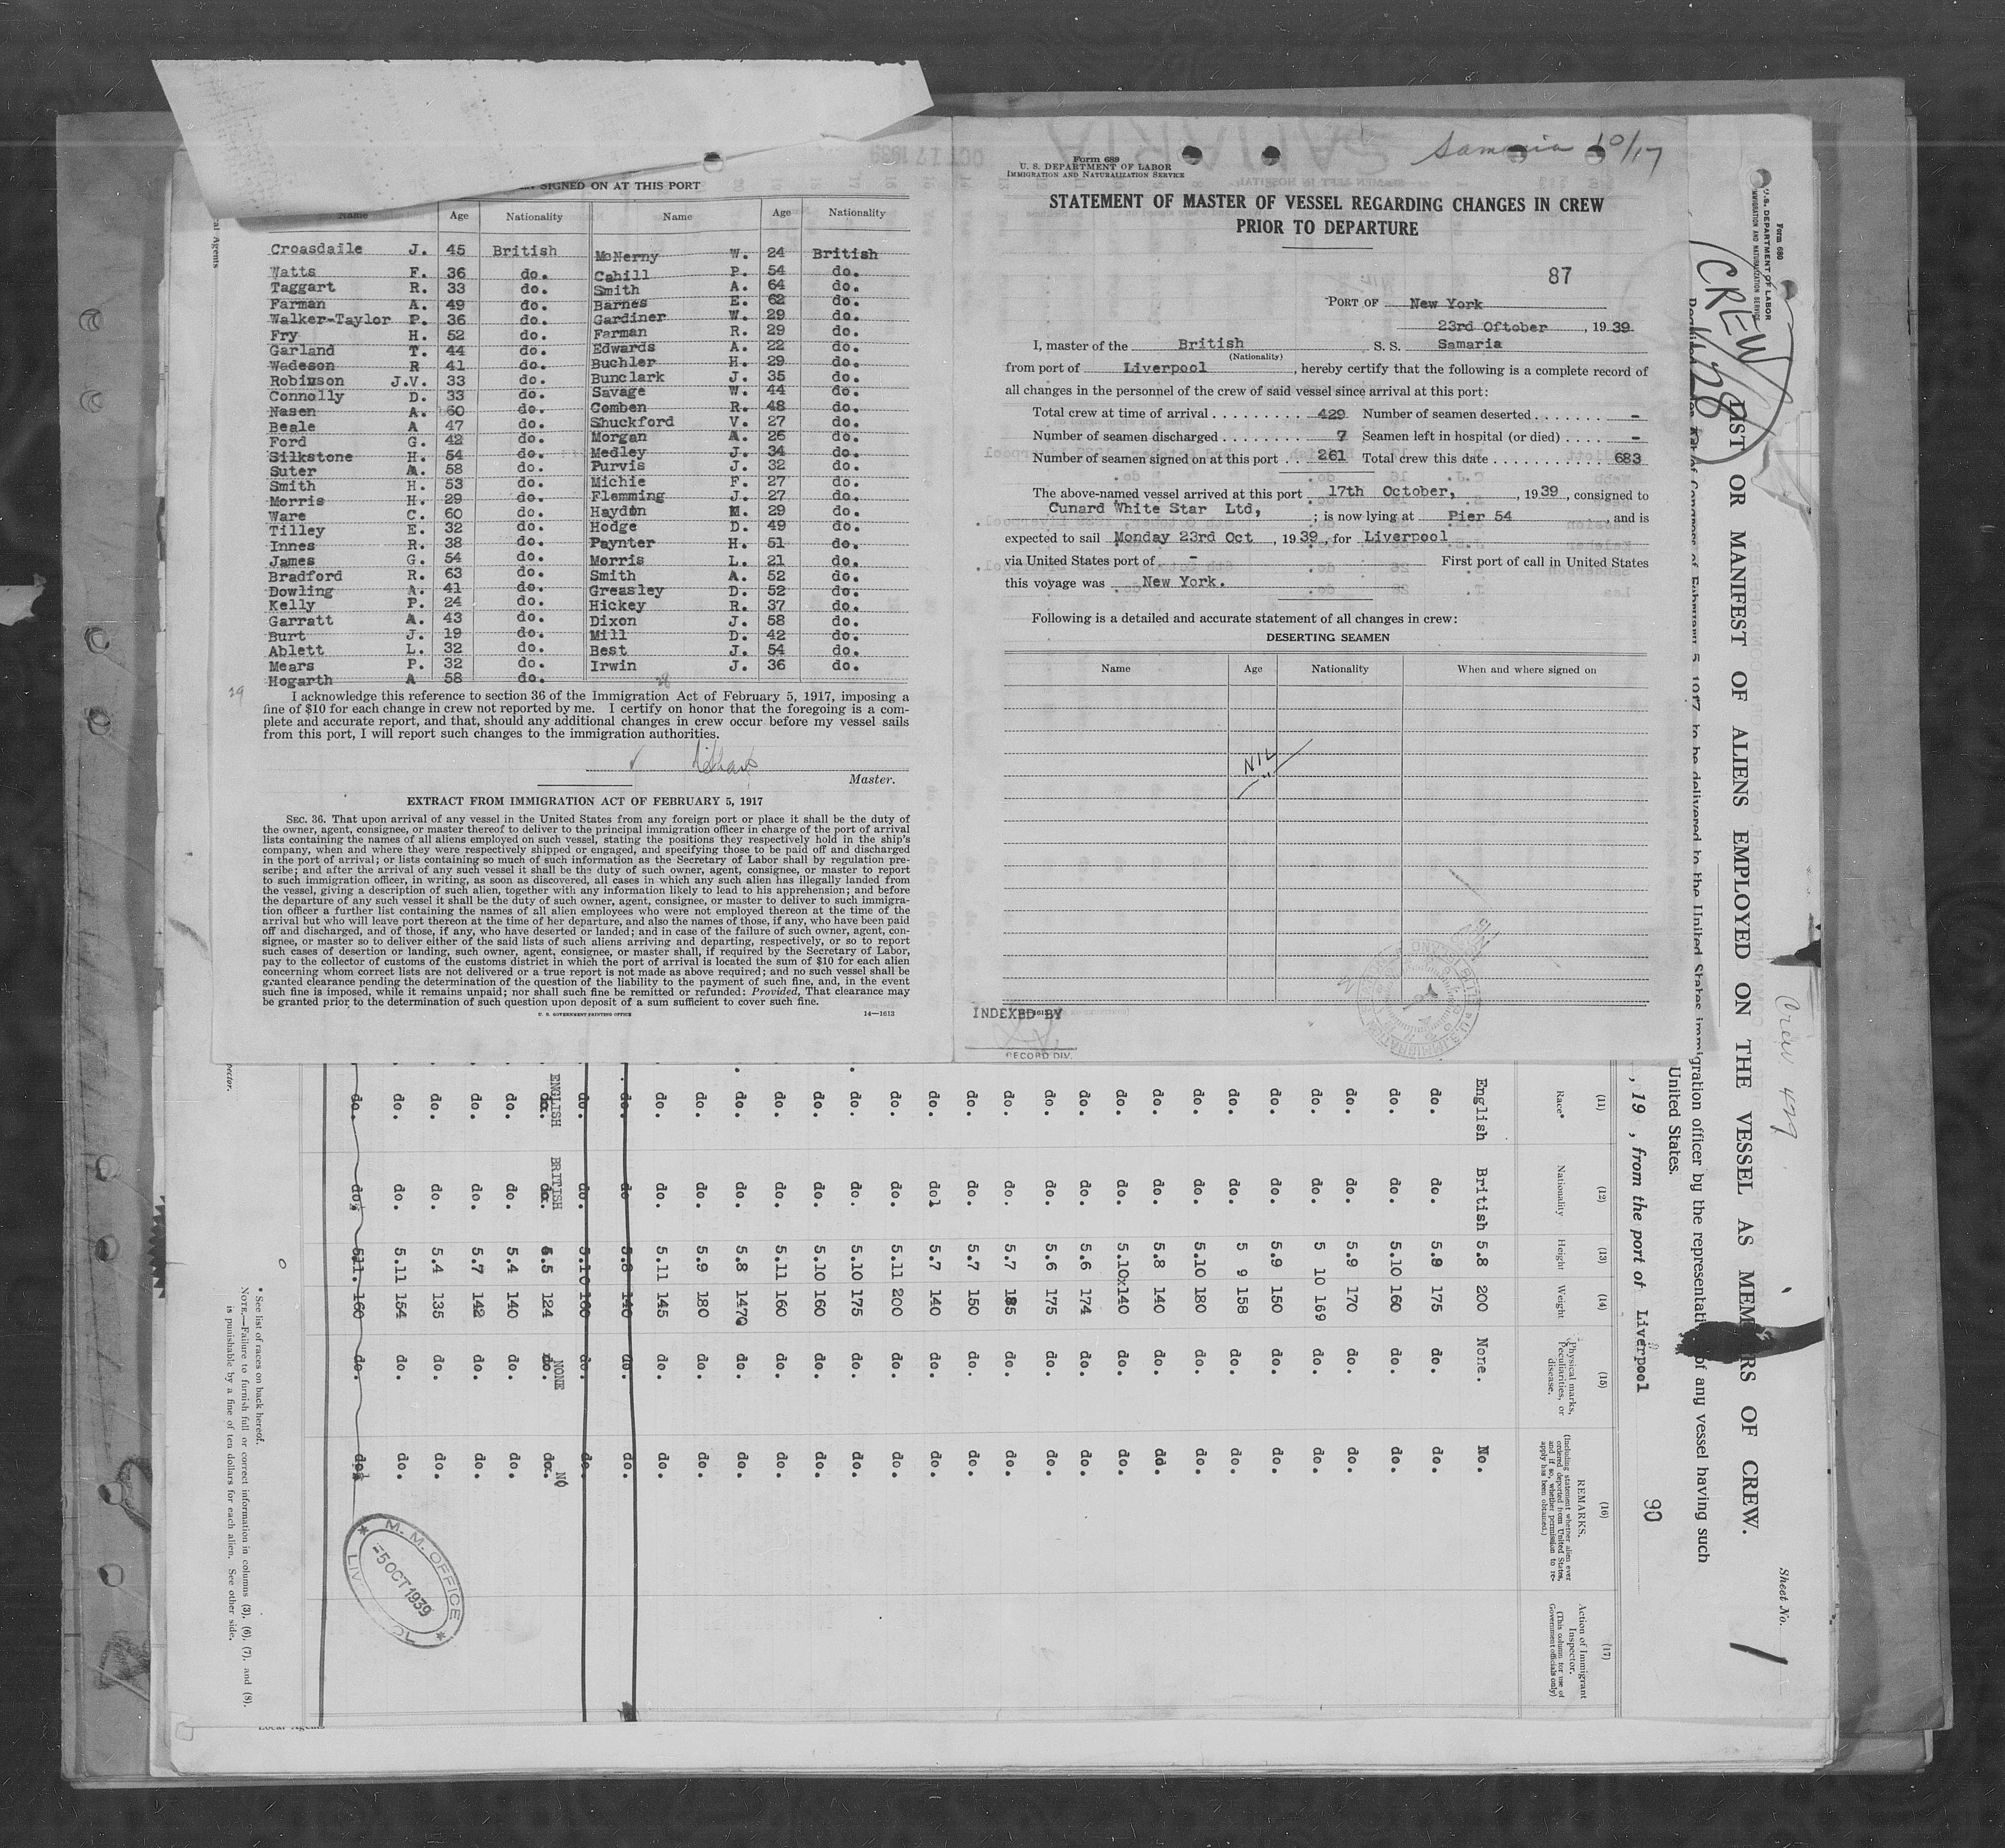 SIGNED ON AT THIS PORT
Name Age Nationality Name Age Nationality
Croasdaile J. 45 British McNerny W. 24 British
Watts F. 36 do. Cahill P. 54 do.
Taggart R. 33 do. Smith A. 64 do.
Farman A. 49 do. Barnes E. 62 do.
Walker-Taylor P. 36 do. Gardiner W. 29 do.
Fry H. 52 do. Farman R. 29 do.
Garland T. 44 do. Edwards A. 22 do.
Wadeson R 41 do. Buchler H. 29 do.
Robinson J.V. 33 do. Bunclark J. 35 do.
Connolly D. 33 do. Savage W. 44 do.
Nasen A. 60 do. Comben R. 48 do.
Beale A 47 do. Shuckford V. 27 do.
Ford G. 42 do. Morgan A. 26 do.
Silkstone H. 54 do. Medley J. 34 do.
Suter A. 58 do. Purvis J. 32 do.
Smith H. 53 do. Michie F. 27 do.
Morris H. 29 do. Flemming J. 27 do.
Ware C. 60 do. Haydon M. 29 do.
Tilley E. 32 do. Hodge D. 49 do.
Innes R. 38 do. Paynter H. 51 do.
James G. 54 do. Morris L. 21 do.
Bradford R. 63 do. Smith A. 52 do.
Dowling A. 41 do. Greasley D. 52 do.
Kelly P. 24 do. Hickey R. 37 do.
Garratt A. 43 do. Dixon J. 58 do.
Burt J. 19 do. Mill D. 42 do.
Ablett L. 32 do. Best J. 54 do.
Mears P. 32 do. Irwin J. 36 do.
Hogarth A 58 do.
29 28
I acknowledge this reference to section 36 of the Immigration Act of February 5, 1917, imposing a
fine of $10 for each change in crew not reported by me. I certify on honor that the foregoing is a com-
plete and accurate report, and that, should any additional changes in crew occur before my vessel sails
from this port, I will report such changes to the immigration authorities.
Master.
EXTRACT FROM IMMIGRATION ACT OF FEBRUARY 5, 1917
SEC. 36. That upon arrival of any vessel in the United States from any foreign port or place it shall be the duty of
the owner, agent, consignee, or master thereof to deliver to the principal immigration officer in charge of the port of arrival
lists containing the names of all aliens employed on such vessel, stating the positions they respectively hold in the ship's
company, when and where they were respectively shipped or engaged, and specifying those to be paid off and discharged
in the port of arrival; or lists containing so much of such information as the Secretary of Labor shall by regulation pre-
scribe; and after the arrival of any such vessel it shall be the duty of such owner, agent, consignee, or master to report
to such immigration officer, in writing, as soon as discovered, all cases in which any such alien has illegally landed from
the vessel, giving a description of such alien, together with any information likely to lead to his apprehension; and before
the departure of any such vessel it shall be the duty of such owner, agent, consignee, or master to deliver to such immigra-
tion officer a further list containing the names of all alien employees who were not employed thereon at the time of the
arrival but who will leave port thereon at the time of her departure, and also the names of those, if any, who have been paid
off and discharged, and of those, if any, who have deserted or landed; and in case of the failure of such owner, agent, con-
signee, or master so to deliver either of the said lists of such aliens arriving and departing, respectively, or so to report
such cases of desertion or landing, such owner, agent, consignee, or master shall, if required by the Secretary of Labor,
pay to the collector of customs of the customs district in which the port of arrival is located the sum of $10 for each alien
concerning whom correct lists are not delivered or a true report is not made as above required; and no such vessel shall be
granted clearance pending the determination of the question of the liability to the payment of such fine, and, in the event
such fine is imposed, while it remains unpaid; nor shall such fine be remitted or refunded: Provided, That clearance may
be granted prior to the determination of such question upon deposit of a sum sufficient to cover such fine.
U. S. GOVERNMENT PRINTING OFFICE 14—1613
Samaria 10/17
Form 689
U. S. DEPARTMENT OF LABOR
IMMIGRATION AND NATURALIZATION SERVICE
STATEMENT OF MASTER OF VESSEL REGARDING CHANGES IN CREW
PRIOR TO DEPARTURE
87
PORT OF New York
23rd Oftober, 1939
I, master of the British S. S. Samaria
(Nationality)
from port of Liverpool, hereby certify that the following is a complete record of
all changes in the personnel of the crew of said vessel since arrival at this port:
Total crew at time of arrival 429 Number of seamen deserted -
Number of seamen discharged 7 Seamen left in hospital (or died) -
Number of seamen signed on at this port 261 Total crew this date 683
The above-named vessel arrived at this port 17th October, , 1939, consigned to
Cunard White Star Ltd, ; is now lying at Pier 54, and is
expected to sail Monday 23rd Oct, 1939, for Liverpool
via United States port of - First port of call in United States
this voyage was New York.
Following is a detailed and accurate statement of all changes in crew:
DESERTING SEAMEN
Name Age Nationality When and where signed on
NIL
INDEXED BY
RECORD DIV.
Form 680
U. S. DEPARTMENT OF LABOR
IMMIGRATION AND NATURALIZATION SERVICE
CREW
Crew 429
Sheet No. 1
LIST OR MANIFEST OF ALIENS EMPLOYED ON THE VESSEL AS MEMBERS OF CREW.
to be delivered to the United States immigration officer by the representative of any vessel having such
United States.
, 19 , from the port of Liverpool
90
(11) (12) (13) (14) (15) (16) (17)
Race* Nationality Height Weight Physical marks, Peculiarities, or disease. REMARKS. (Including statement whether alien ever ordered deported from United States, and if so, whether permission to re-apply has been obtained.) Action of Immigrant Inspector. (This column for use of Government officials only)
English British 5.8 200 None. No.
do. do. 5.9 175 do. do.
do. do. 5.10 160 do. do.
do. do. 5.9 170 do. do.
do. do. 5 10 169 do. do.
do. do. 5.9 150 do. do.
do. do. 5 9 158 do. do.
do. do. 5.10 180 do. do.
do. do. 5.8 140 do. dd.
do. do. 5.10x140 do. do.
do. do. 5.6 174 do. do.
do. do. 5.6 175 do. do.
do. do. 5.7 185 do. do.
do. do. 5.7 150 do. do.
do. dol 5.7 140 do. do.
do. do. 5.11 200 do. do.
do. do. 5.10 175 do. do.
do. do. 5.10 160 do. do.
do. do. 5.11 160 do. do.
do. do. 5.8 147 do. do.
do. do. 5.9 180 do. do.
do. do. 5.11 145 do. do.
do. do 5.8 140 do. do.
do. do. 5.10 160 do. do.
ENGLISH BRITISH 5.5 124 NONE NO
do. do. 5.4 140 do. do.
do. do. 5.7 142 do. do.
do. do. 5.4 135 do. do.
do. do. 5.11 154 do. do.
do. do. 511. 160 do. do.
M. M. OFFICE
-5 OCT 1939
* See list of races on back hereof.
NOTE.—Failure to furnish full or correct information in columns (3), (6), (7), and (8).
is punishable by a fine of ten dollars for each alien. See other side.